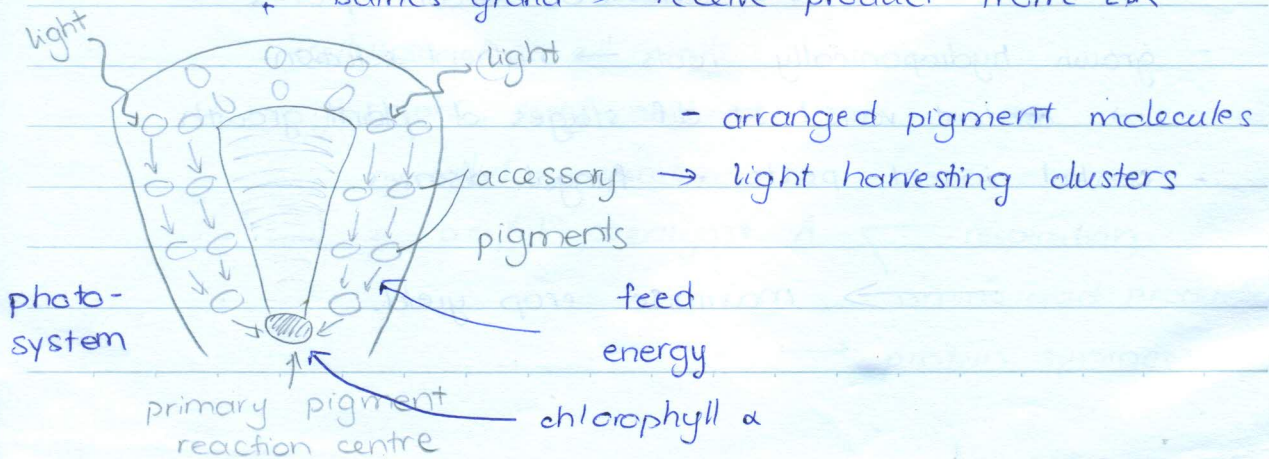 grana → receive product from
light
light
- arranged pigment molecules
accessory → light harvesting clusters
pigments
photo-
system
feed
energy
primary pigment
reaction centre
chlorophyll α